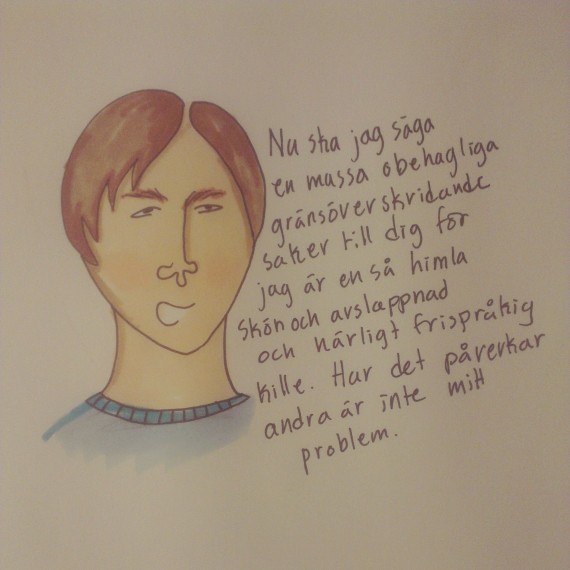 Nu ska jag säga
en massa obehagliga
gränsöverskridande
saker till dig för
jag är en så himla
skön och avslappnad
och härligt frispråkig
kille. Hur det påverkar
andra är inte mitt
problem.